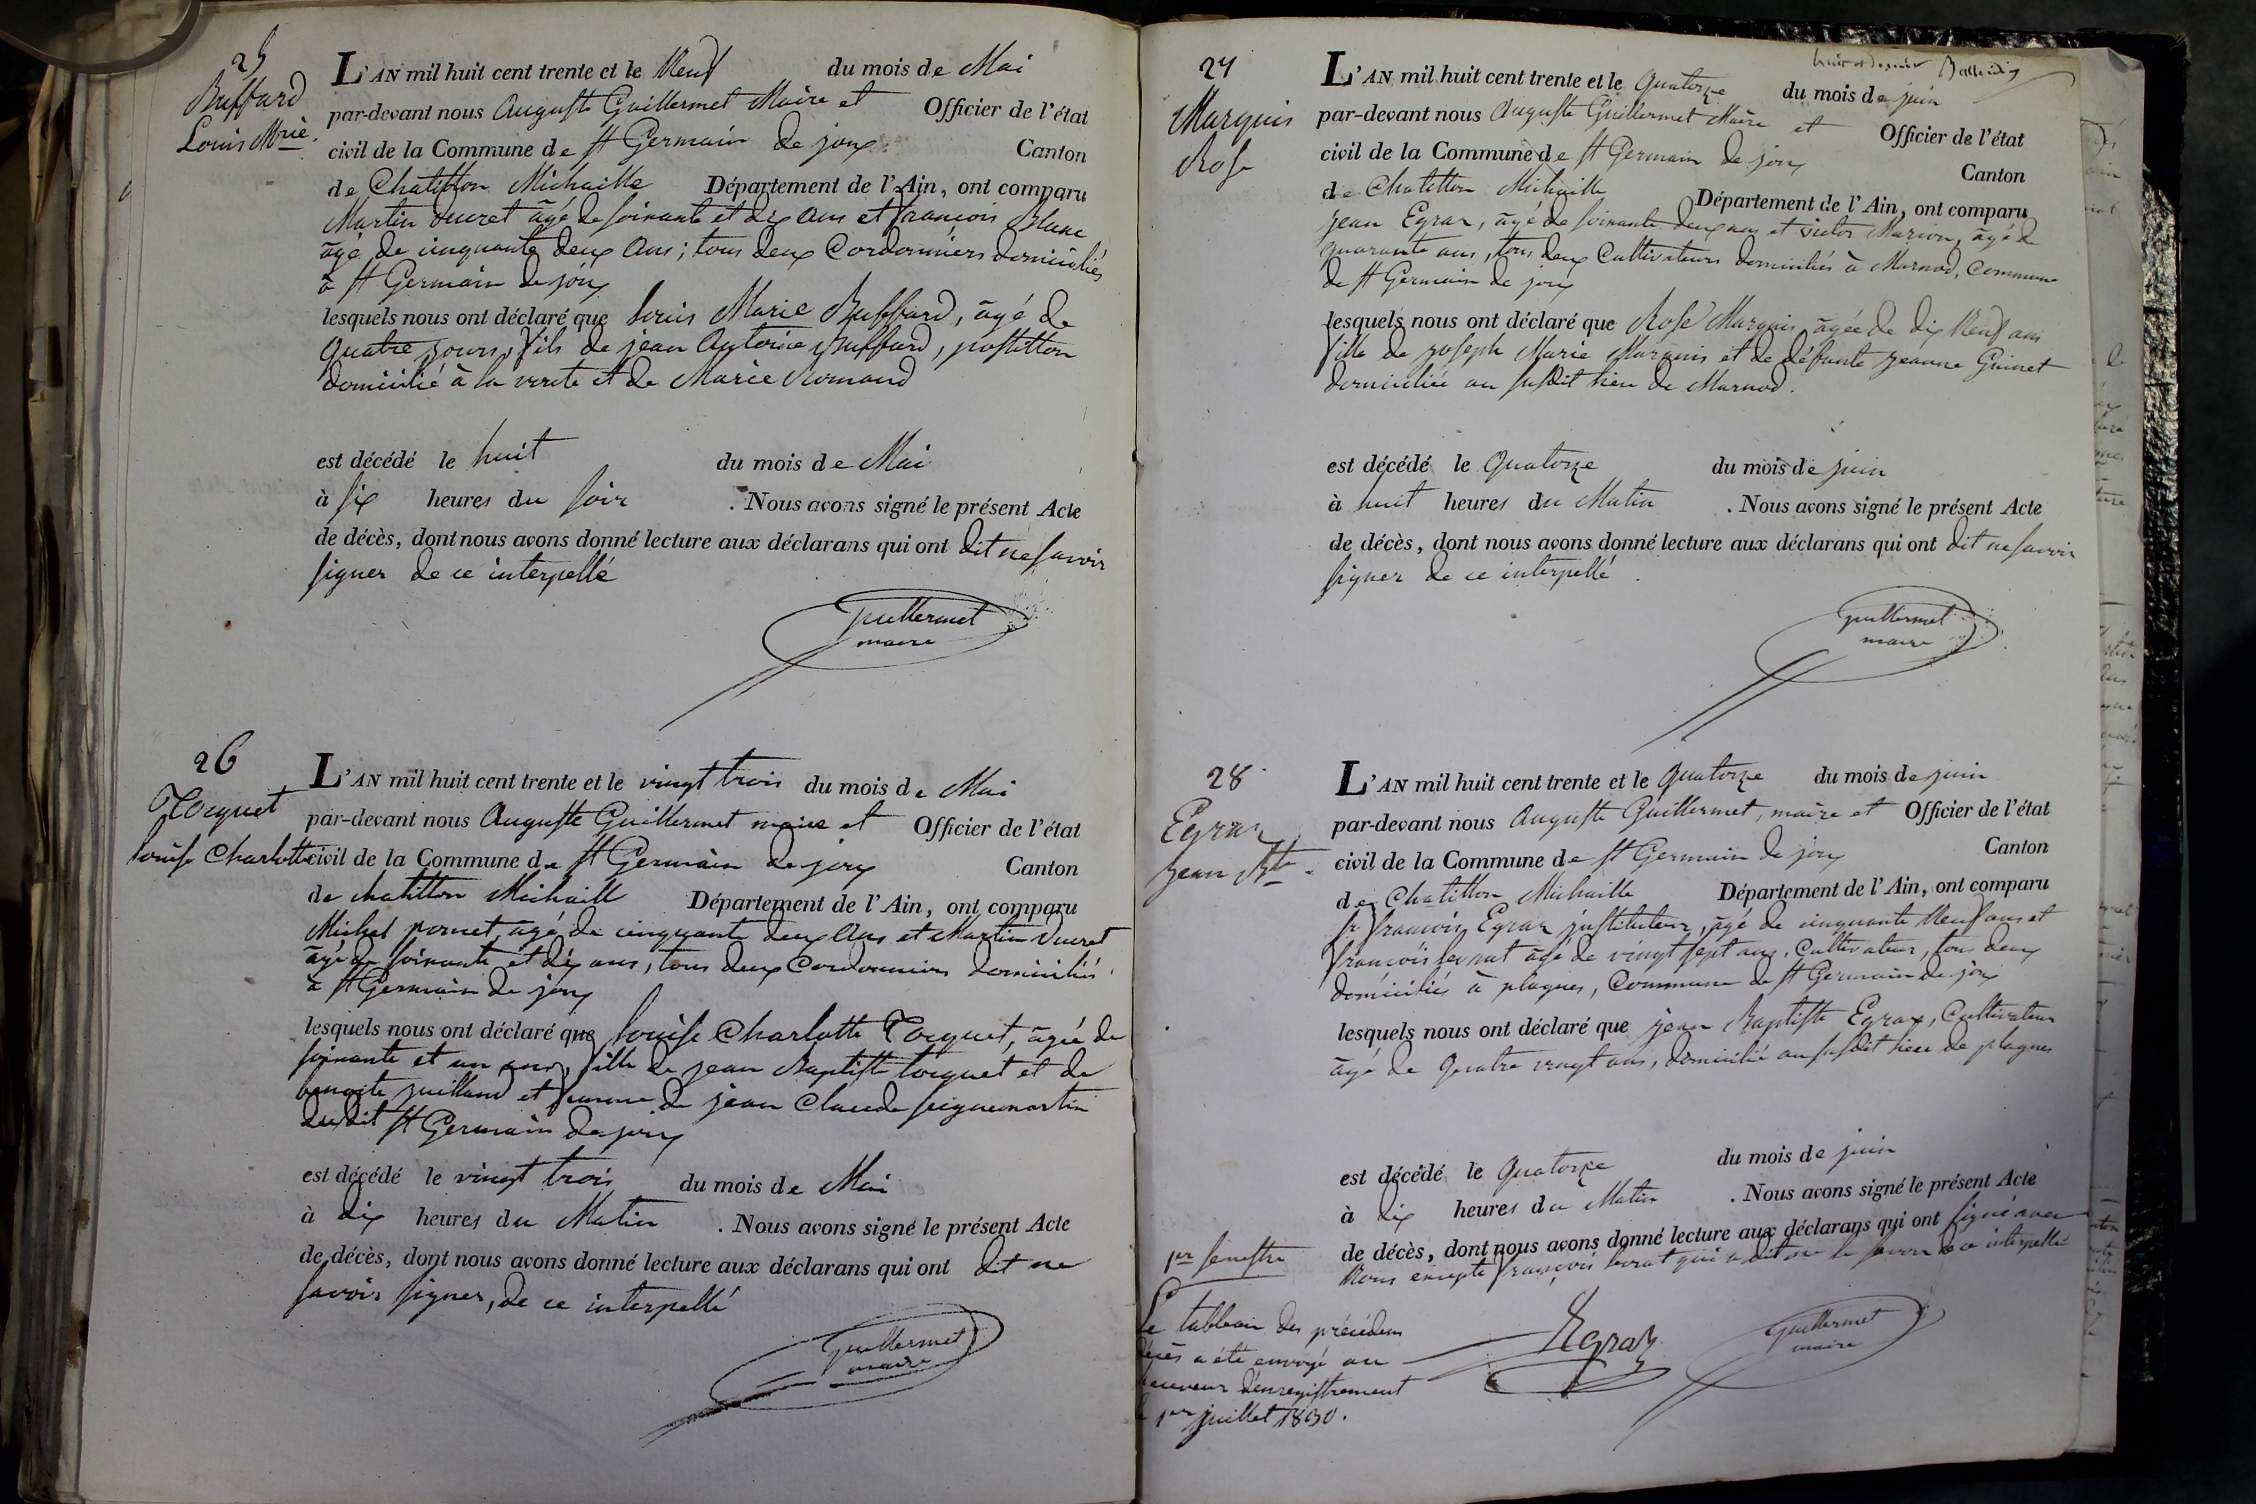 25
Buffard
Louis Mrie.
L'AN mil huit cent trente et le Neuf du mois de Mai
par-devant nous Auguste Guillermet Maire et Officier de l'état
civil de la Commune de St Germain de joux Canton
de Chatillon Michaille Département de l'Ain, ont comparu
Martin Ducret âgé de soixante et dix ans et françois Blanc
âgé de cinquante deux ans; tous deux Cordonniers domiciliés
à St Germain de joux
lesquels nous ont déclaré que Louis Marie Buffard, âgé de
quatre jours, fils de jean Antoine Buffard, postillon
domicilié à la voute et de Marie Romand
est décédé le huit du mois de Mai
à six heures du soir . Nous avons signé le présent Acte
de décès, dont nous avons donné lecture aux déclarans qui ont dit ne savoir
signer de ce interpellé
Guillermet
maire
26
Tocquet
Louise Charlotte
L'AN mil huit cent trente et le vingt trois du mois de Mai
par-devant nous Auguste Guillermet maire et Officier de l'état
civil de la Commune de St Germain de joux Canton
de chatillon Michaille Département de l'Ain, ont comparu
Michel pornet, âgé de cinquante deux Ans et Martin Ducret
âgé de soixante et dix ans, tous deux Cordonniers domiciliés
à St Germain de joux
lesquels nous ont déclaré que Louise Charlotte Tocquet, âgée de
soixante et un ans, fille de jean Baptiste tocquet et de
benoite juilland et femme de jean Claude seignemartin
dudit St Germain de joux
est décédé le vingt trois du mois de Mai
à dix heures du Matin . Nous avons signé le présent Acte
de décès, dont nous avons donné lecture aux déclarans qui ont dit ne
savoir signer, de ce interpellé
Guillermet
maire
27
Marquis
Rose
L'AN mil huit cent trente et le Quatorze du mois de juin
par-devant nous Auguste Guillermet Maire et Officier de l'état
civil de la Commune de St Germain de joux Canton
de Chatillon Michaille Département de l'Ain, ont comparu
jean Egraz, âgé de soixante deux ans et victor Marion, âgé de
quarante ans, tous deux Cultivateurs domiciliés à Marnod, Commune
de St Germain de joux
lesquels nous ont déclaré que Rose Marquis âgée de dix Neuf ans
fille de joseph Marie Marquis et de défunte jeanne Guinet
domiciliée au susdit lieu de Marnod.
est décédé le Quatorze du mois de juin
à huit heures du Matin . Nous avons signé le présent Acte
de décès, dont nous avons donné lecture aux déclarans qui ont dit ne savoir
signer de ce interpellé.
Guillermet
maire
28
Egraz
jean Bte.
L'AN mil huit cent trente et le Quatorze du mois de juin
par-devant nous Auguste Guillermet, maire et Officier de l'état
civil de la Commune de St Germain de joux Canton
de Chatillon Michaille Département de l'Ain, ont comparu
Sr françois Egraz jnstituteur, âgé de cinquante Neuf ans et
françois âgé de vingt sept ans, Cultivateur, tous deux
domiciliés à plagnes, Commune de St Germain de joux
lesquels nous ont déclaré que jean Baptiste Egraz, Cultivateur
âgé de Quatre vingt ans, domicilié au susdit lieu de plagnes
est décédé le Quatorze du mois de juin
à dix heures du Matin . Nous avons signé le présent Acte
de décès, dont nous avons donné lecture aux déclarans qui ont signé avec
Nous excepté françois qui a dit ne le savoir de ce interpellé
Egraz
Guillermet
maire
1er semestre
Le tableau des précédens
décès a été envoyé au
receveur d'enregistrement
le 1er juillet 1830.